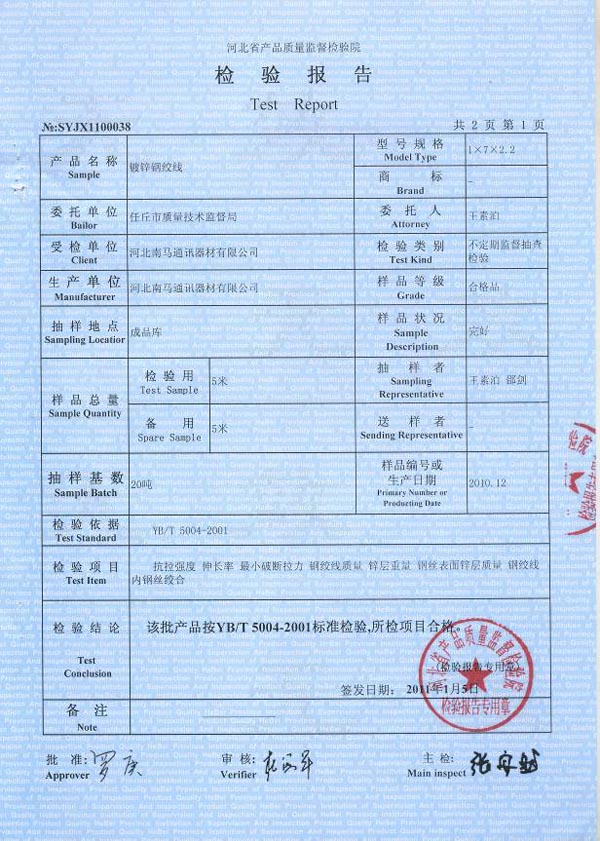 河北省产品质量监督检验院
检验报告
Test Report
№:SYJX1100038
共 2 页 第 1 页
产品名称
Sample
镀锌钢绞线
型号规格
Model Type
1×7×2.2
商标
Brand
-
委托单位
Bailor
任丘市质量技术监督局
委托人
Attorney
王素泊
受检单位
Client
河北南马通讯器材有限公司
检验类别
Test Kind
不定期监督抽查
检验
生产单位
Manufacturer
河北南马通讯器材有限公司
样品等级
Grade
合格品
抽样地点
Sampling Location
成品库
样品状况
Sample
Description
完好
样品总量
Sample Quantity
检验用
Test Sample
5米
备用
Spare Sample
5米
抽样者
Sampling
Representative
王素泊 邵剑
送样者
Sending Representative
-
抽样基数
Sample Batch
20吨
样品编号或
生产日期
Primary Number or
Producting Date
2010.12
检验依据
Test Standard
YB/T 5004-2001
检验项目
Test Item
抗拉强度 伸长率 最小破断拉力 钢绞线质量 锌层重量 钢丝表面锌层质量 钢绞线
内钢丝绞合
检验结论
Test
Conclusion
该批产品按YB/T 5004-2001标准检验,所检项目合格。
(检验报告专用章)
签发日期: 2011年1月5日
河北省产品质量监督检验院
检验报告专用章
备注
Note
批准:
Approver
审核:
Verifier
主检:
Main inspect